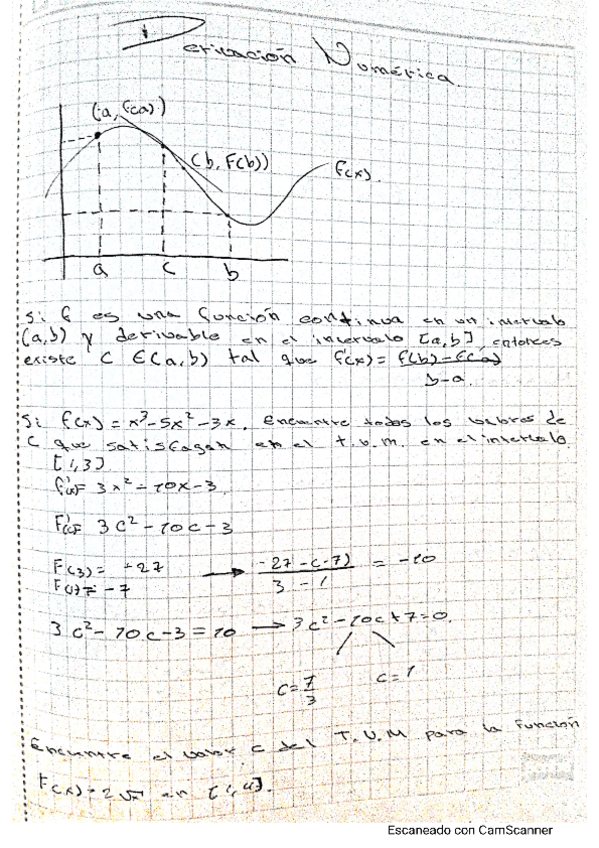 Derivación Numérica.
(a, f(a))
(b, F(b))
f(x).
a c b
Si f es una función continua en un intervalo
(a,b) y derivable en el intervalo [a,b], entonces
existe C ∈(a,b) tal que f'(x) = f(b)-f(a)
b-a
Si f(x) = x³-5x²-3x. Encuentre todos los valores de
C que satisfagan en el t.v.m. en el intervalo
[1,3]
f'(x)= 3x²-10x-3.
F'(c)= 3c²-10c-3
F(3)= -27 → -27-(-7) = -10
F(1)= -7 3-1
3c²-10c-3=10 → 3c²-10c+7=0.
c=7/3 c=1
Encuentre el valor c del T.V.M para la función
F(x)=2√x en [1,4].
Escaneado con CamScanner